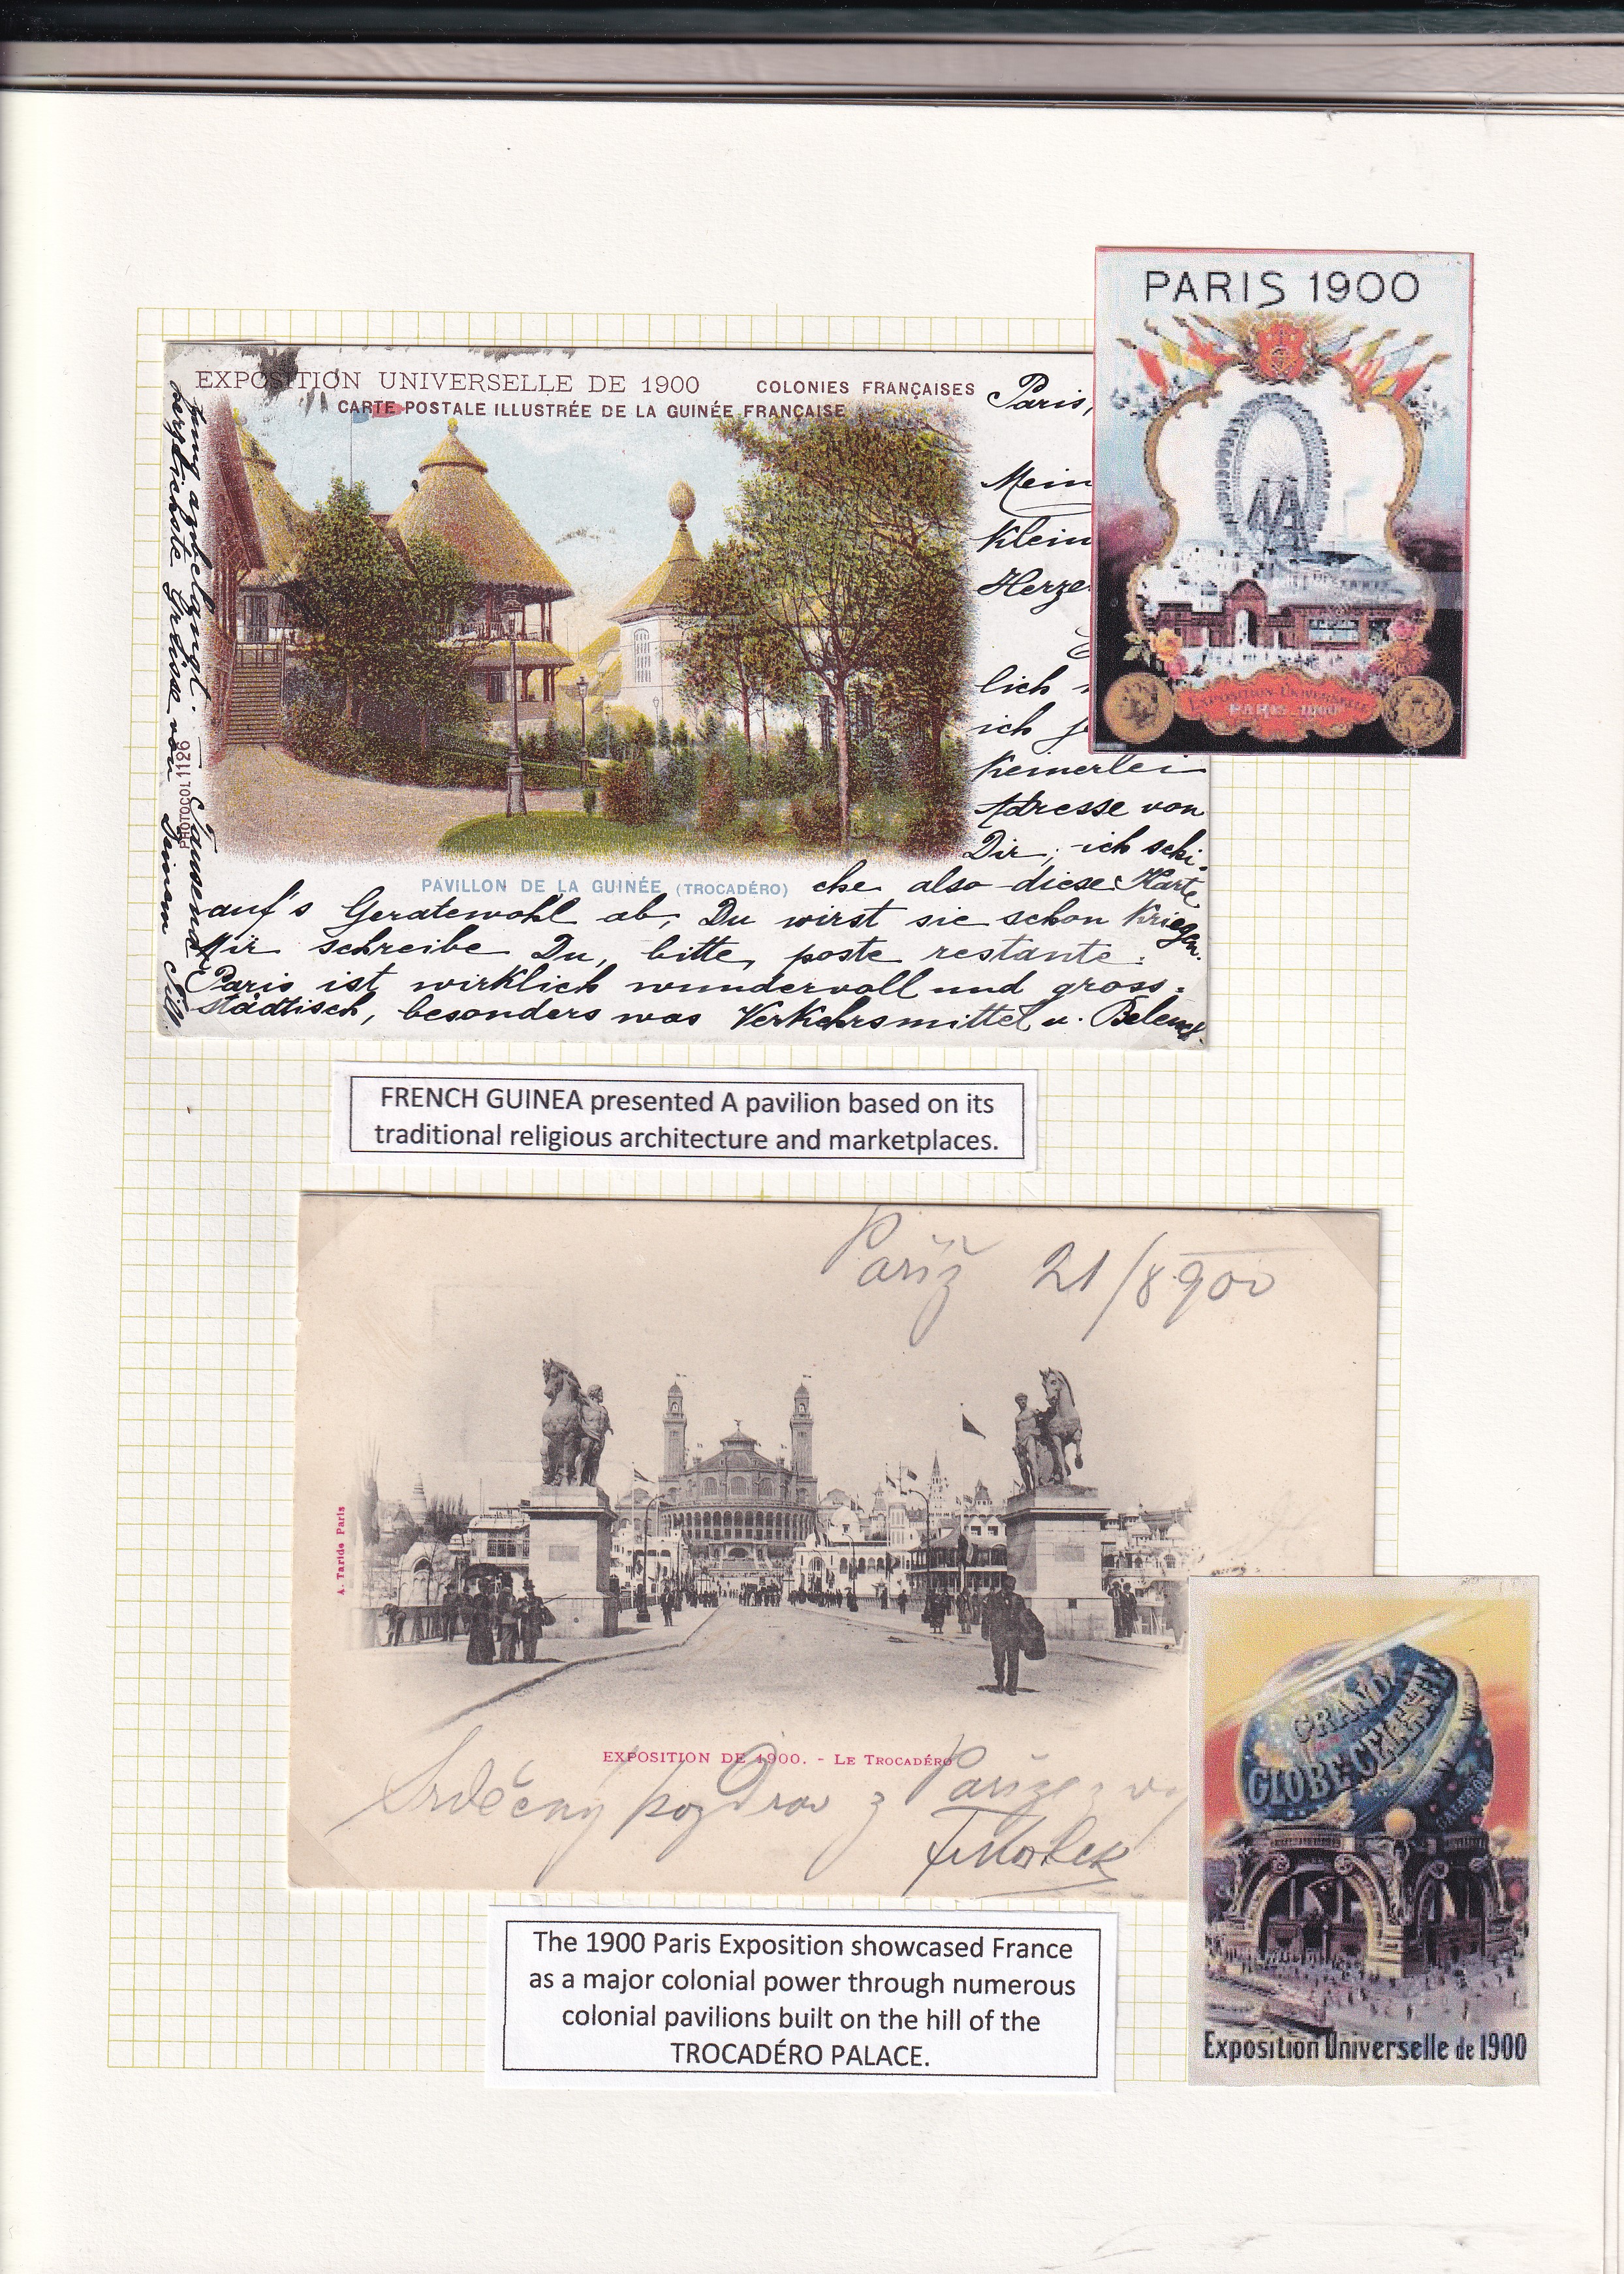 PARIS 1900
EXPOSITION UNIVERSELLE
PARIS 1900
EXPOSITION UNIVERSELLE DE 1900 COLONIES FRANÇAISES
CARTE POSTALE ILLUSTRÉE DE LA GUINÉE FRANÇAISE
Paris,
Mein
Klein
Herze
lich
ich
Keinerlei
Adresse von
Dir, ich schi-
PAVILLON DE LA GUINÉE (TROCADÉRO) cke also diese Karte
auf's Geratewohl ab, Du wirst sie schon kriegen.
Mir schreibe Du, bitte, poste restante.
Paris ist wirklich wundervoll und gross-
städtisch, besonders was Verkehrsmittel u. Beleucht.
anbelangt. Tausend
herzlichste Grüsse von Deinem
PHOTOCOL 1126
FRENCH GUINEA presented A pavilion based on its
traditional religious architecture and marketplaces.
Paříž 21/8 900
A. Taride Paris
EXPOSITION DE 1900. - LE TROCADÉRO
Srdečný pozdrav z Paříže
GRAND
GLOBE CELESTE
Exposition Universelle de 1900
The 1900 Paris Exposition showcased France
as a major colonial power through numerous
colonial pavilions built on the hill of the
TROCADÉRO PALACE.